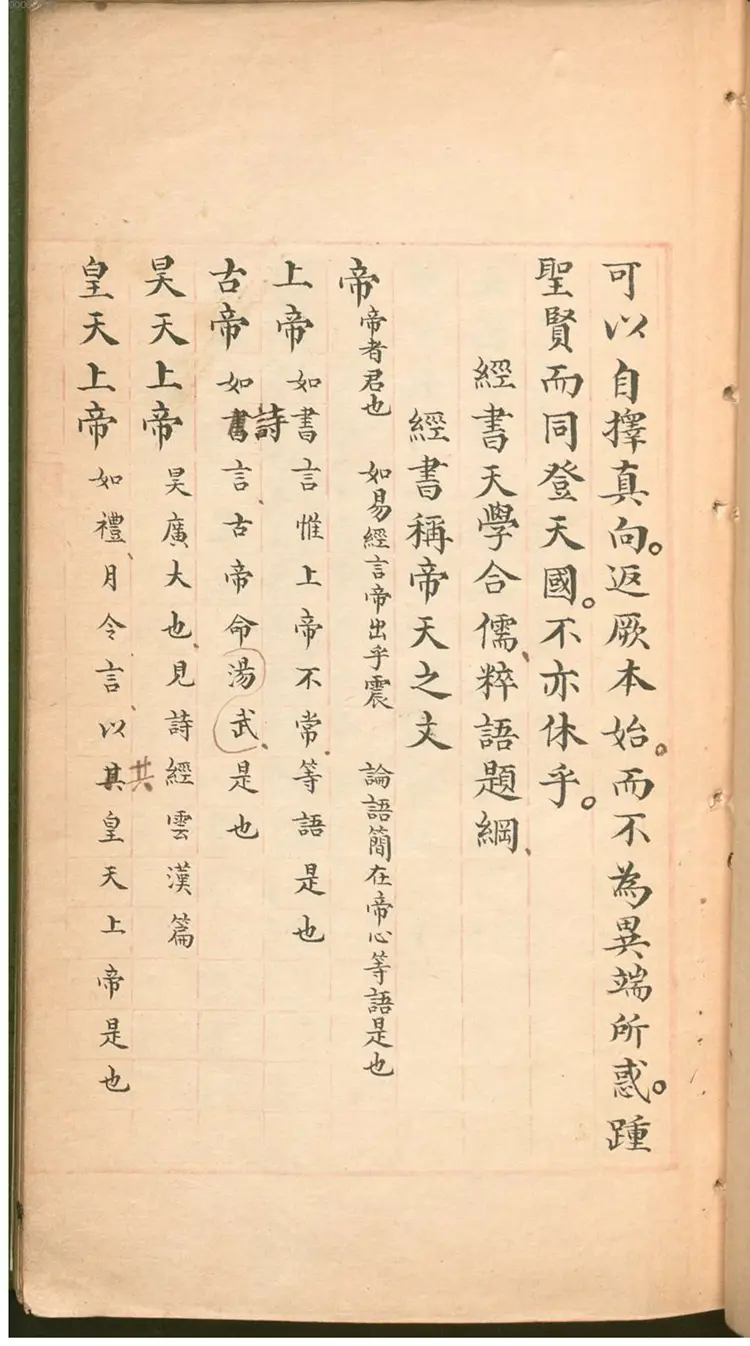 可以自擇真向。返厥本始。而不為異端所惑。踵
聖賢而同登天國。不亦休乎。
經書天學合儒、粹語題綱、
經書稱帝天之文
帝帝者君也 如易經言帝出乎震 論語簡在帝心等語是也
上帝如書言惟上帝不常、等語是也
詩
古帝如書言、古帝命湯武、是也
昊天上帝 昊廣大也、見詩經雲漢篇
共
皇天上帝如禮、月令言、以其皇天上帝是也